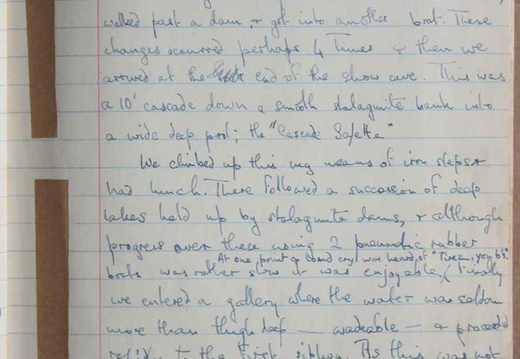 walked past a dam & got into another boat. These
changes occurred perhaps 4 times & then we
arrived at the end of the show cave. This was
a 10' cascade down a smooth stalagmite bank into
a wide deep pool; the "Cascade
We climbed up this my means of iron steps &
had lunch. There followed a succession of deep
lakes held up by stalagmite dams, & although
progress over these using 2 pneumatic rubber
At one point a loud cry was heard, of
boats was rather slow it was enjoyable, Finally
we entered a gallery where the water was seldom
more than thigh deep — wadeable — &
to the first siphon. As this was not